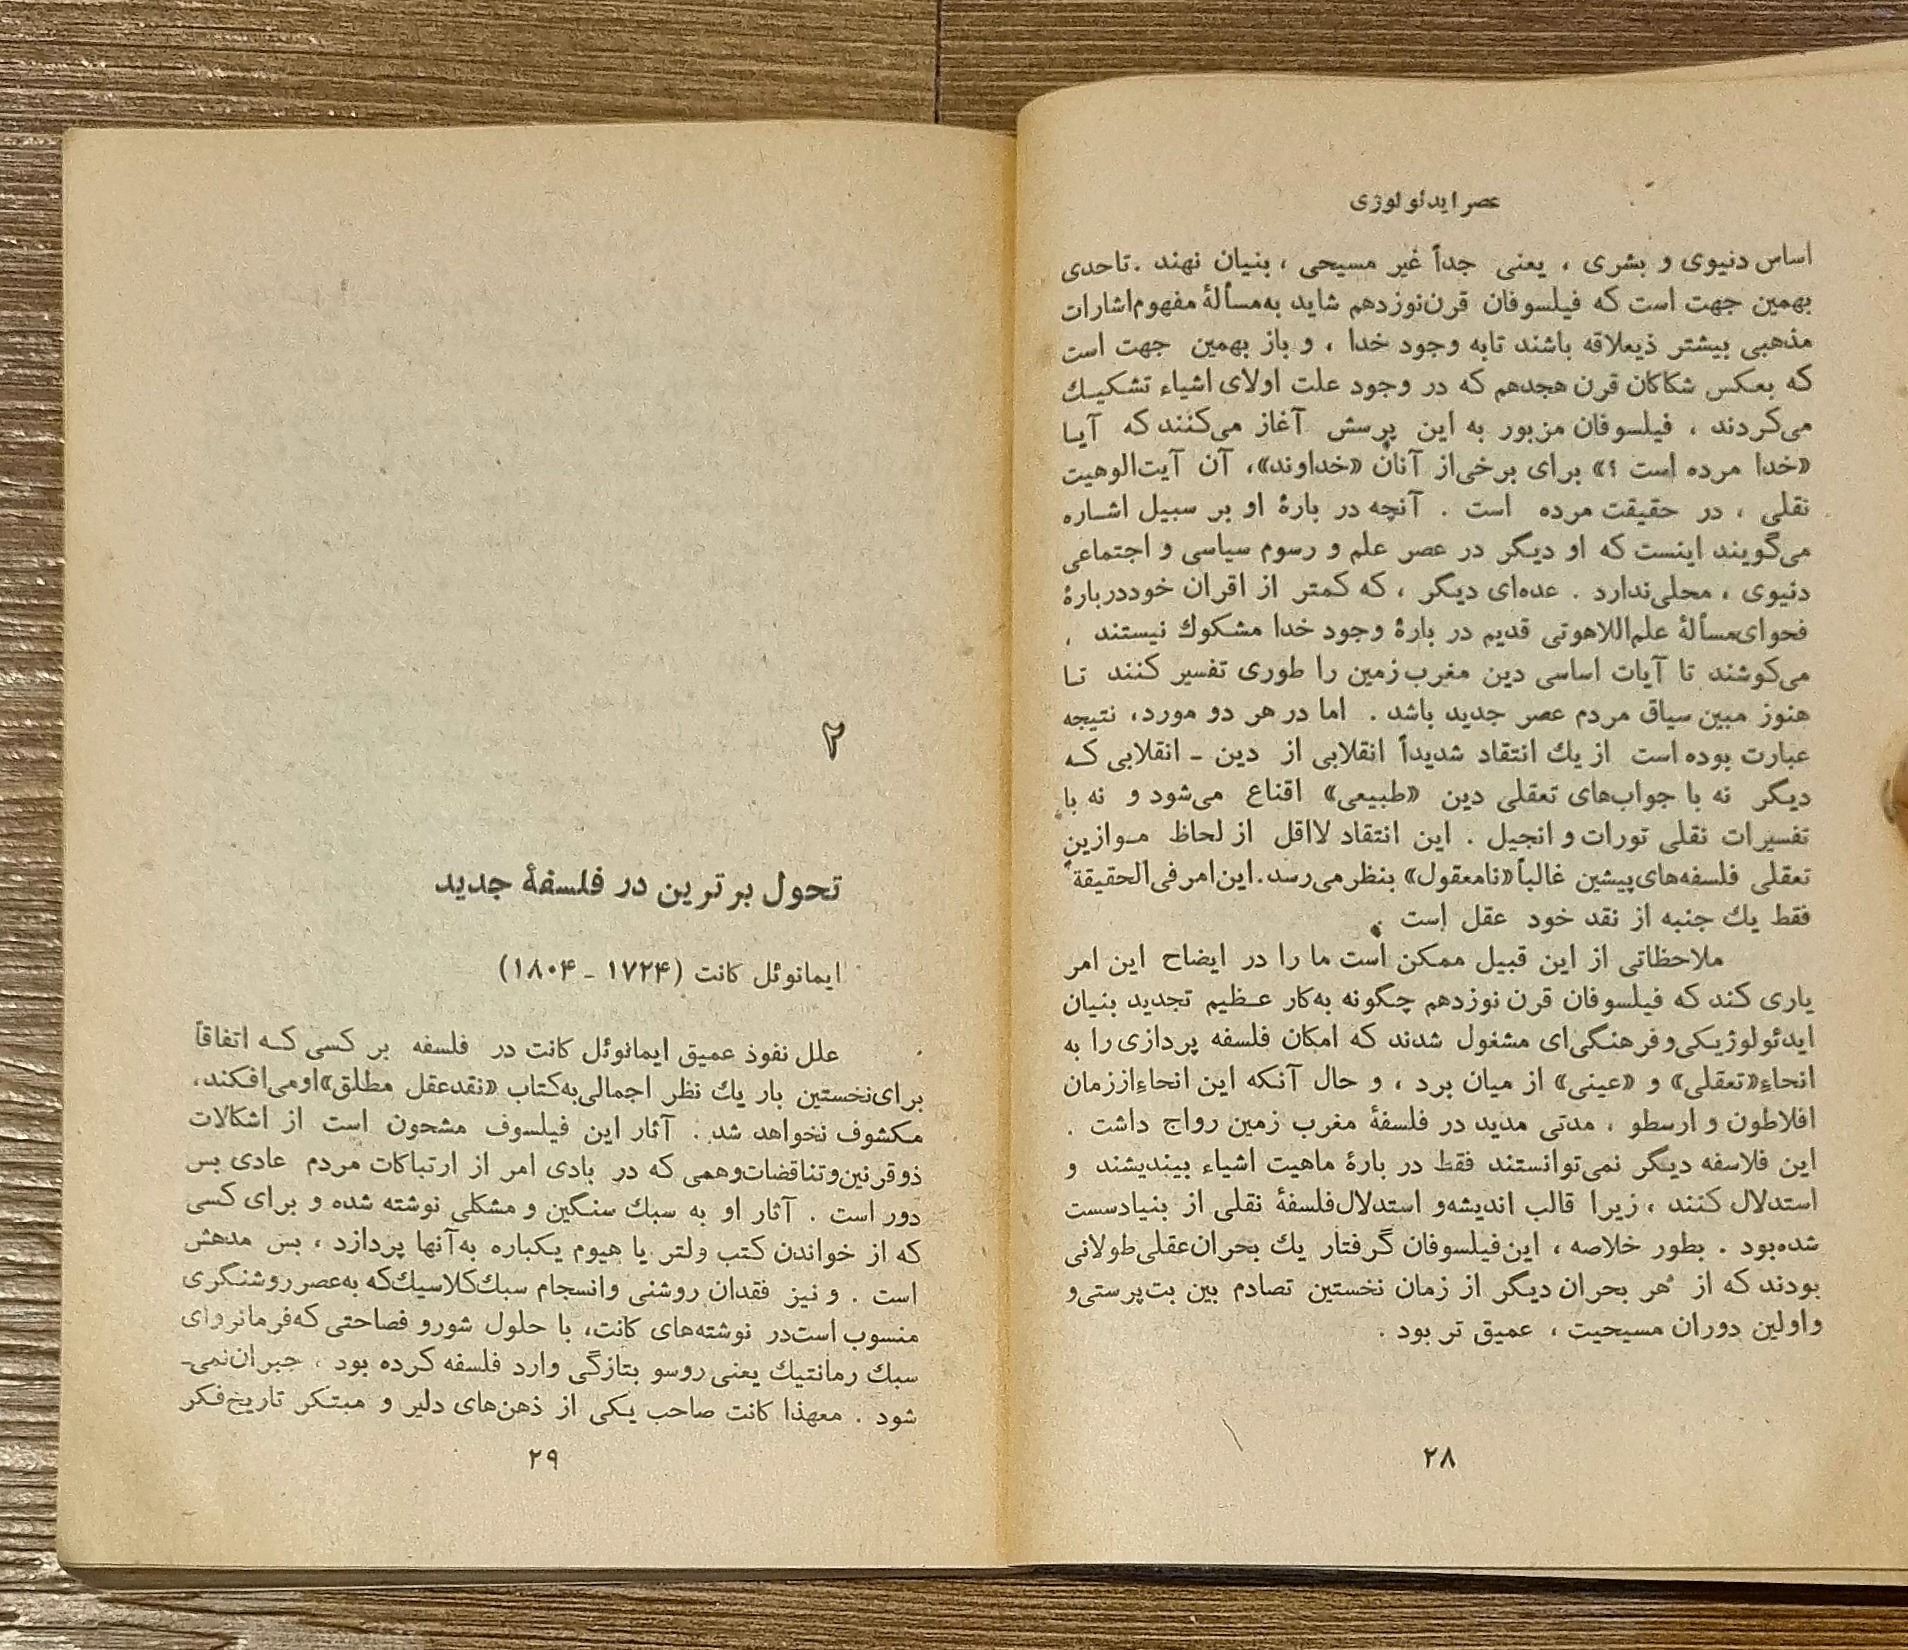 عصر ایدئولوژی
اساس دنیوی و بشری ، یعنی جداً غیر مسیحی ، بنیان نهند . تاحدی
بهمین جهت است که فیلسوفان قرن‌نوزدهم شاید به‌مسألهٔ مفهوم‌اشارات
مذهبی بیشتر ذیعلاقه باشند تابه وجود خدا ، و باز بهمین جهت است
که بعکس شکاکان قرن هجدهم که در وجود علت اولای اشیاء تشکیك
می‌کردند ، فیلسوفان مزبور به این پرسش آغاز می‌کنند که آیا
«خدا مرده است ؟» برای برخی‌از آنان «خداوند»، آن آیت‌الوهیت
نقلی ، در حقیقت مرده است . آنچه در بارهٔ او بر سبیل اشاره
می‌گویند اینست که او دیگر در عصر علم و رسوم سیاسی و اجتماعی
دنیوی ، محلی‌ندارد . عده‌ای دیگر ، که کمتر از اقران خوددربارهٔ
فحوای‌مسألهٔ علم‌اللاهوتی قدیم در بارهٔ وجود خدا مشکوك نیستند ،
می‌کوشند تا آیات اساسی دین مغرب زمین را طوری تفسیر کنند تا
هنوز مبین سیاق مردم عصر جدید باشد . اما در هر دو مورد، نتیجه
عبارت بوده است از یك انتقاد شدیداً انقلابی از دین ـ انقلابی که
دیگر نه با جواب‌های تعقلی دین «طبیعی» اقناع می‌شود و نه با
تفسیرات نقلی تورات و انجیل . این انتقاد لااقل از لحاظ موازین
تعقلی فلسفه‌های‌پیشین غالباً«نامعقول» بنظرمی‌رسد.این‌امرفی‌الحقیقة
فقط یك جنبه از نقد خود عقل است .
ملاحظاتی از این قبیل ممکن است ما را در ایضاح این امر
یاری کند که فیلسوفان قرن نوزدهم چگونه به‌کار عظیم تجدید بنیان
ایدئولوژیکی‌وفرهنگی‌ای مشغول شدند که امکان فلسفه پردازی را به
انحاء«تعقلی» و «عینی» از میان برد ، و حال آنکه این انحاءاززمان
افلاطون و ارسطو ، مدتی مدید در فلسفهٔ مغرب زمین رواج داشت .
این فلاسفه دیگر نمی‌توانستند فقط در بارهٔ ماهیت اشیاء بیندیشند و
استدلال کنند ، زیرا قالب اندیشه‌و استدلال‌فلسفهٔ نقلی از بنیادسست
شده‌بود . بطور خلاصه ، این‌فیلسوفان گرفتار یك بحران‌عقلی‌طولانی
بودند که از هر بحران دیگر از زمان نخستین تصادم بین بت‌پرستی‌و
واولین دوران مسیحیت ، عمیق تر بود .
۲۸
۲
تحول برترین در فلسفهٔ جدید
ایمانوئل کانت (۱۷۲۴ ـ ۱۸۰۴)
علل نفوذ عمیق ایمانوئل کانت در فلسفه بر کسی که اتفاقاً
برای‌نخستین بار یك نظر اجمالی‌به‌کتاب «نقدعقل مطلق»اومی‌افکند،
مکشوف نخواهد شد . آثار این فیلسوف مشحون است از اشکالات
ذوقرنین‌وتناقضات‌وهمی که در بادی امر از ارتباکات مردم عادی بس
دور است . آثار او به سبك سنگین و مشکلی نوشته شده و برای کسی
که از خواندن کتب ولتر یا هیوم یکباره به‌آنها پردازد ، بس مدهش
است . و نیز فقدان روشنی وانسجام سبك‌کلاسیك‌که به‌عصرروشنگری
منسوب است‌در نوشته‌های کانت، با حلول شورو فصاحتی که‌فرمانروای
سبك رمانتیك یعنی روسو بتازگی وارد فلسفه کرده بود ، جبران‌نمی‌ـ
شود . معهذا کانت صاحب یکی از ذهن‌های دلیر و مبتکر تاریخ‌فکر
۲۹